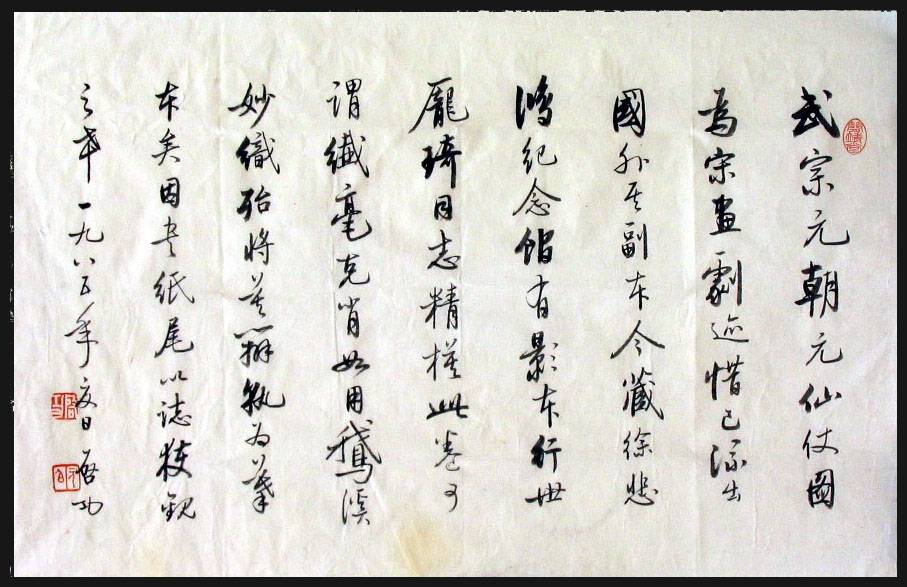 武宗元朝元仙仗圖
為宋畫劇迹惜已流出
國外其副本今藏徐悲
鴻紀念館有影本行世
龐琦同志精橅此卷可
謂纖毫克肖如用鵝溪
妙織殆將莫辦孰為摹
本矣因書紙尾以誌獲觀
之幸一九八五年夏日啟功